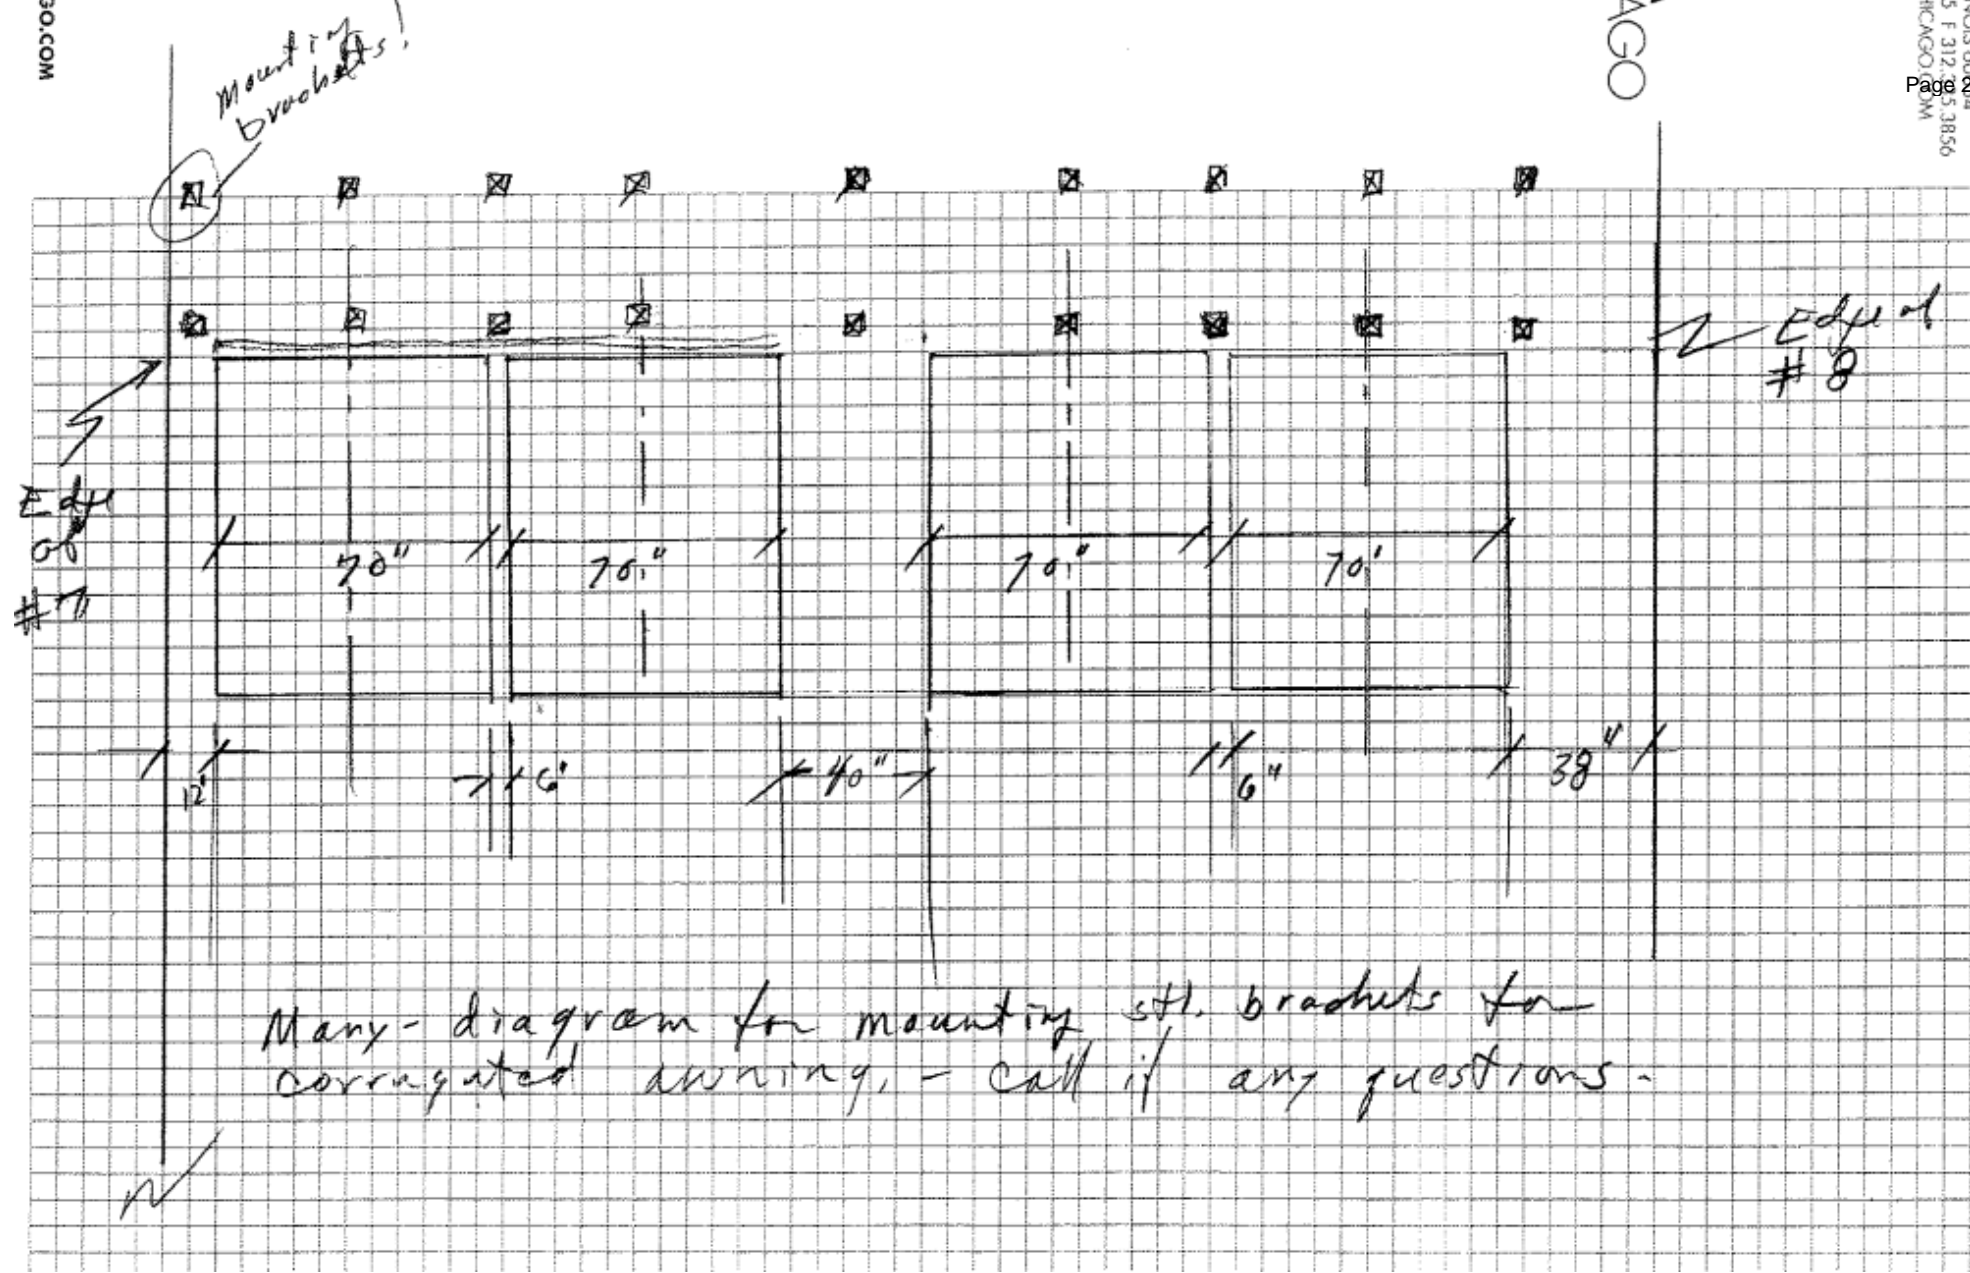 GO.COM
Mounting
brackets!
AGO
5 F 312.335.3856
HICAGO.COM
Page 2
Edge of
# 8
Edge
of
# 7
70"
70"
70"
70'
12'
6'
40"
6"
38"
Many - diagram for mounting stl. brackets for
corrugated awning, - call if any questions -